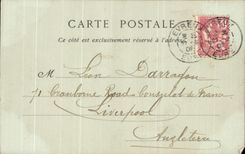 CARTE POSTALE
Ce côté est exclusivement réservé à l'adresse
Monsieur Léon Darrayon
71 Cranborne Road Consulat de France
Liverpool
Angleterre